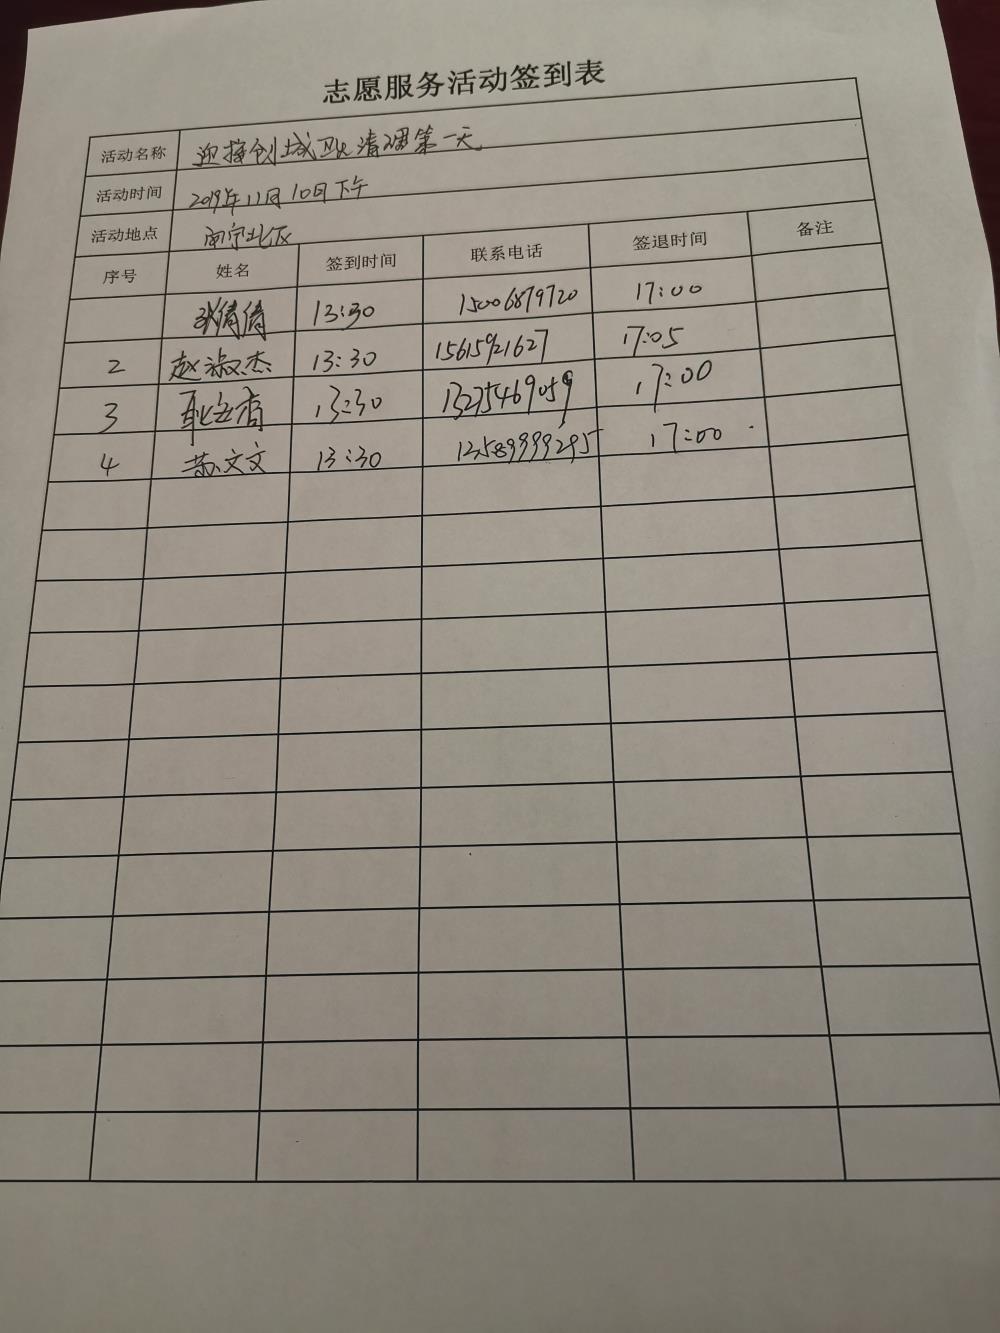 志愿服务活动签到表
活动名称 迎接创城 清调第一天
活动时间 2019年11月10日下午
活动地点 南宁北区
序号 姓名 签到时间 联系电话 签退时间 备注
张倩倩 13:30 15006879720 17:00
2 赵淑杰 13:30 15615921627 17:05
3 13:30 13275469059 17:00
4 苏文文 13:30 17:00